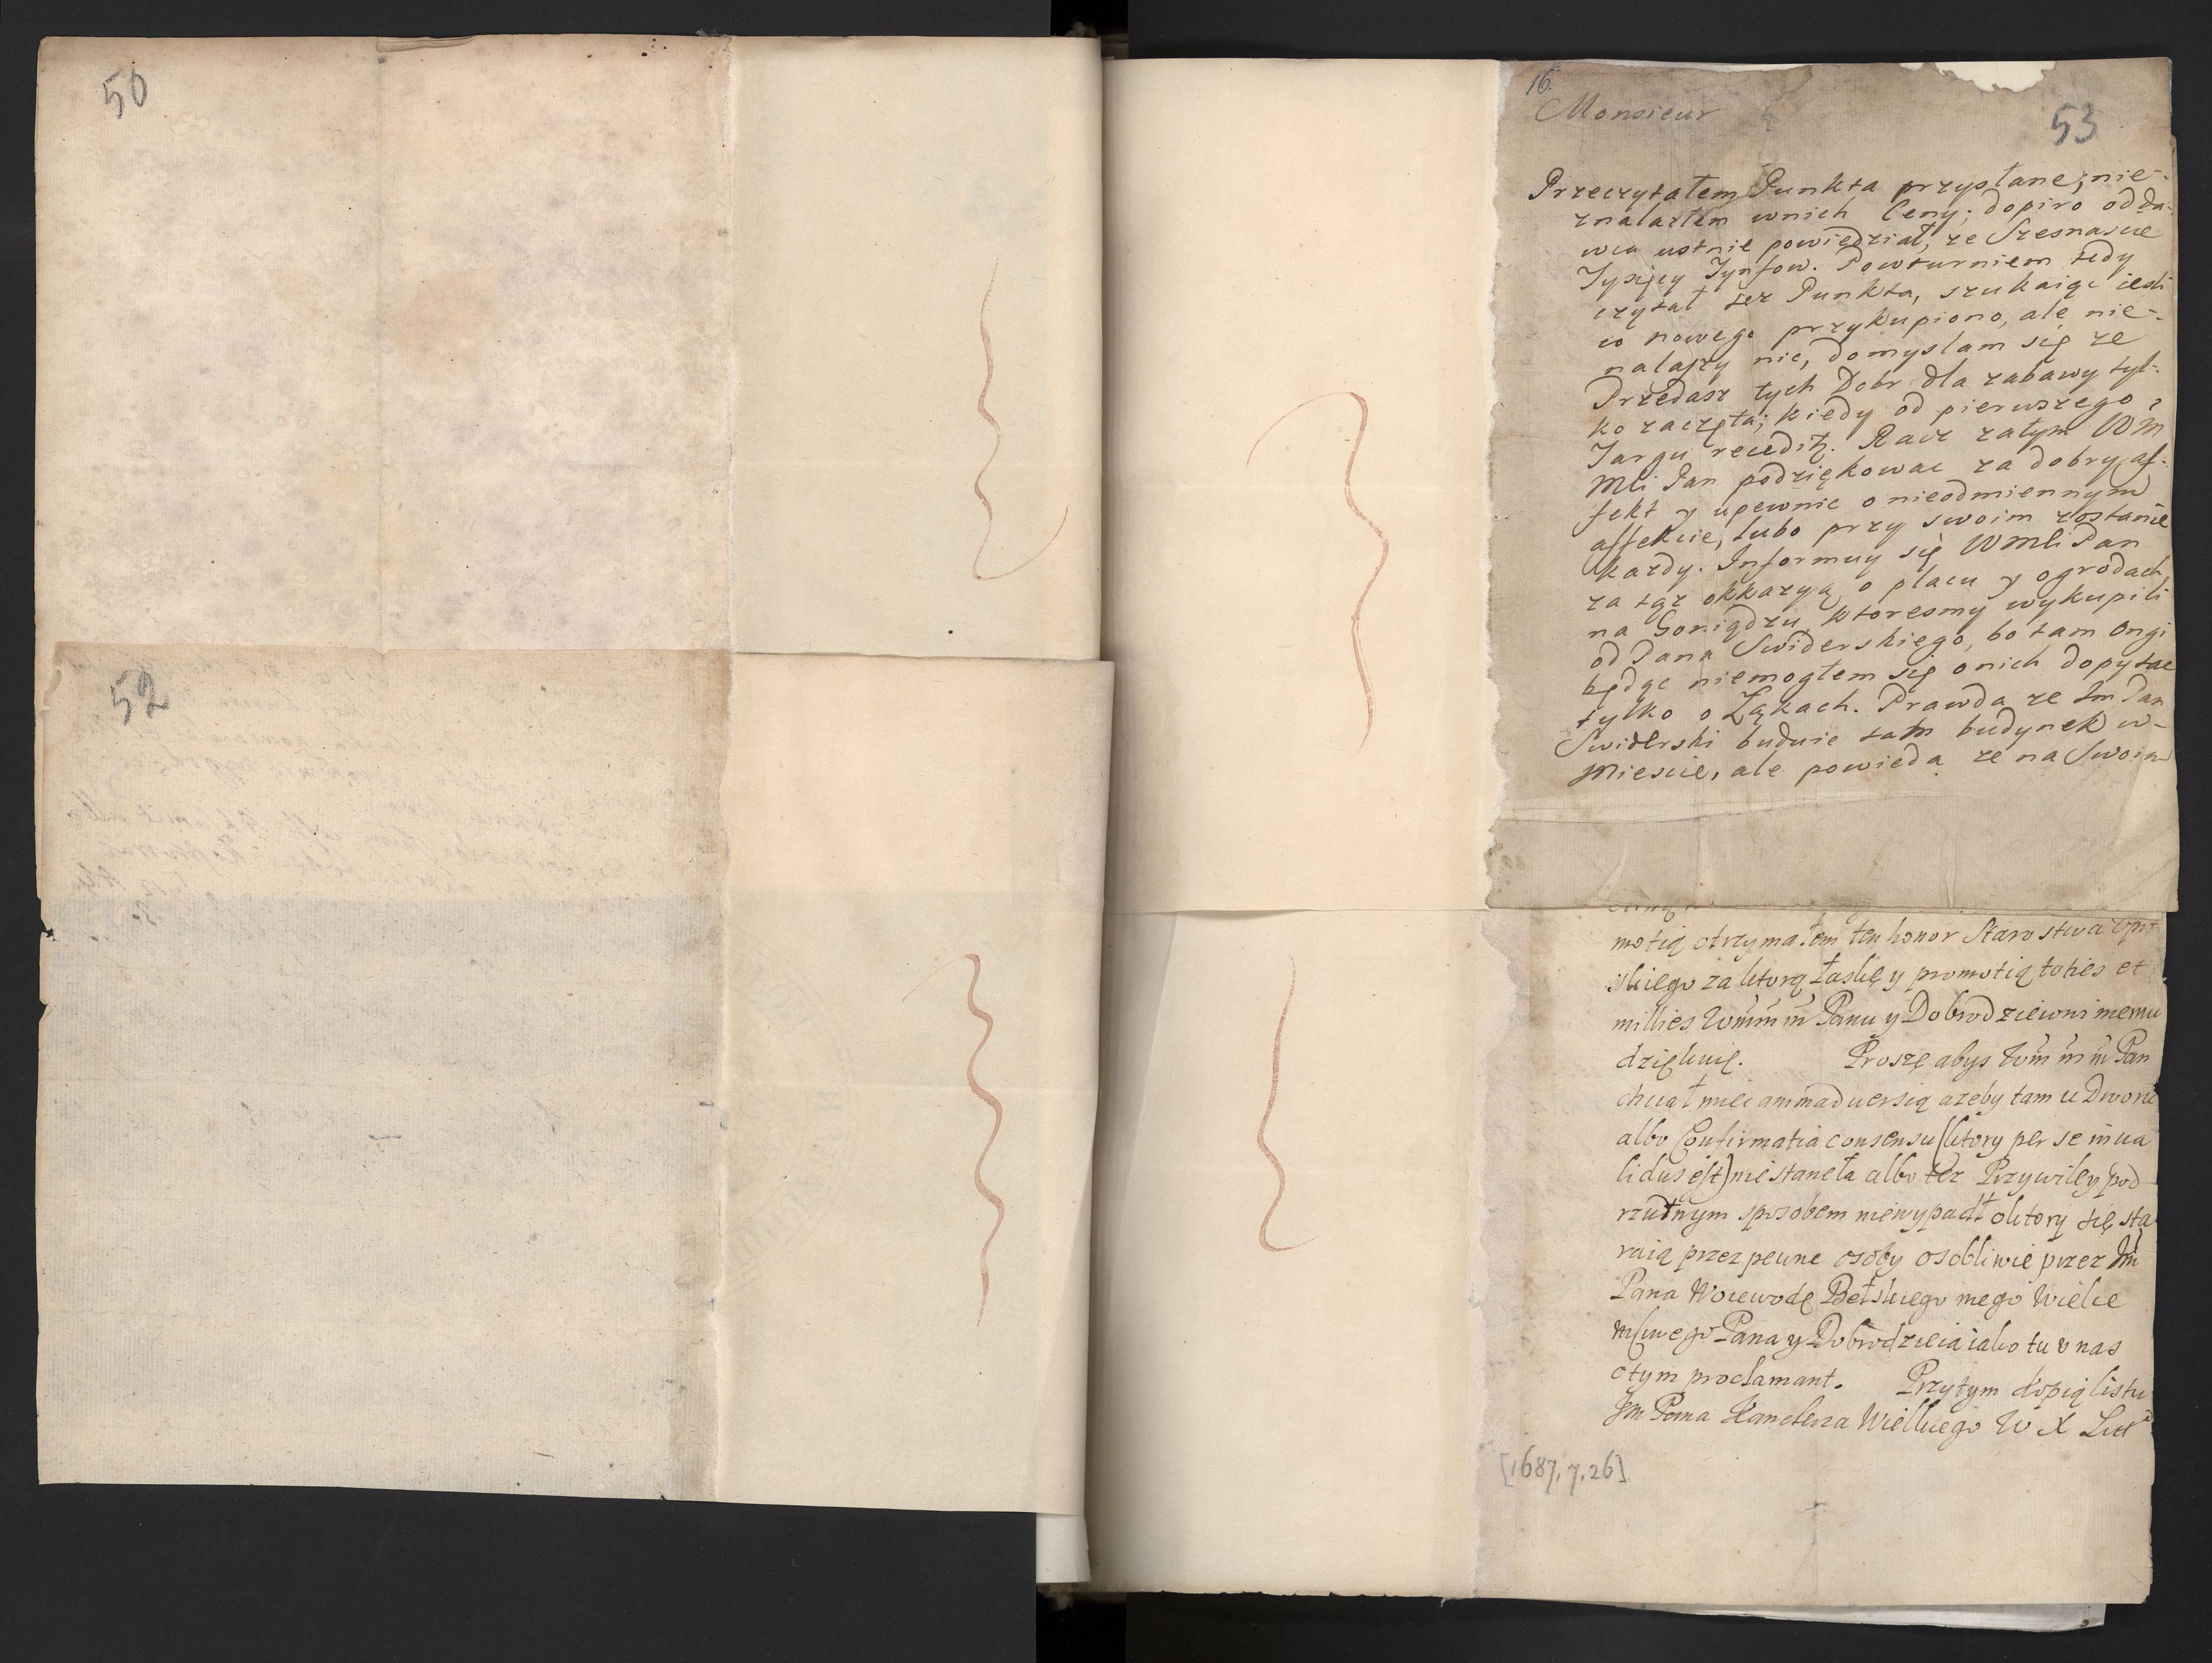 50
52
16.
53
Monsieur
Przeczytałem Punkta przysłane, nie-
znalazłem wnich Ceny; dopiro odda-
wca ustnie powiedział, ze Szesnascie
Tysięcy Tynfow. Powturniem tedy
czytał tez Punkta, szukaiąc iesli
co nowego przykupiono, ale nie-
nalaszy nic, domyslam się ze
Przedasz tych Dobr dla zabawy tyl-
ko zaczęta; kiedy od pierwszego
Targu recedit. Racz zatym WM
Mli Pan podziękowac za dobry af-
fekt y upewnic o nieodmiennym
affekcie, lubo przy swoim zostanie
kazdy. Informuy się WMMli Pan
za tąz okkazyą o placu y ogrodach
na Goniądzu, ktoresmy wykupili
od Pana Swiderskiego, bo tam ongi
będąc niemogłem się onich dopytac
tylko o Łąkach. Prawda ze Im Pan
Swiderski buduie tam budynek w-
Miescie, ale powieda ze na Swoim
motią otrzymałem ten honor Starostwa
skiego za ktorą łaskę y promotią toties et
millies Wmmm Panu y Dobrodzieiowi memu
dziękuię. Proszę abys Wm m m Pan
chciał miec animaduersią azeby tam u Dworu
albo Confirmatia consensu (ktory per se inua
lidus est) nie staneła albo tez Przywiley pod
rzutnym sposobem niewypadł oktory się sta
raią przez pewne osoby osobliwie przez Im
Pana Woiewodę Bełskiego mego Wielce
mściwego Pana y Dobrodzieia iako tu u nas
otym proclamant. Przytym kopią listu
Jm Pana Kanclerza Wielkiego W X Litt
[1687.7.26]